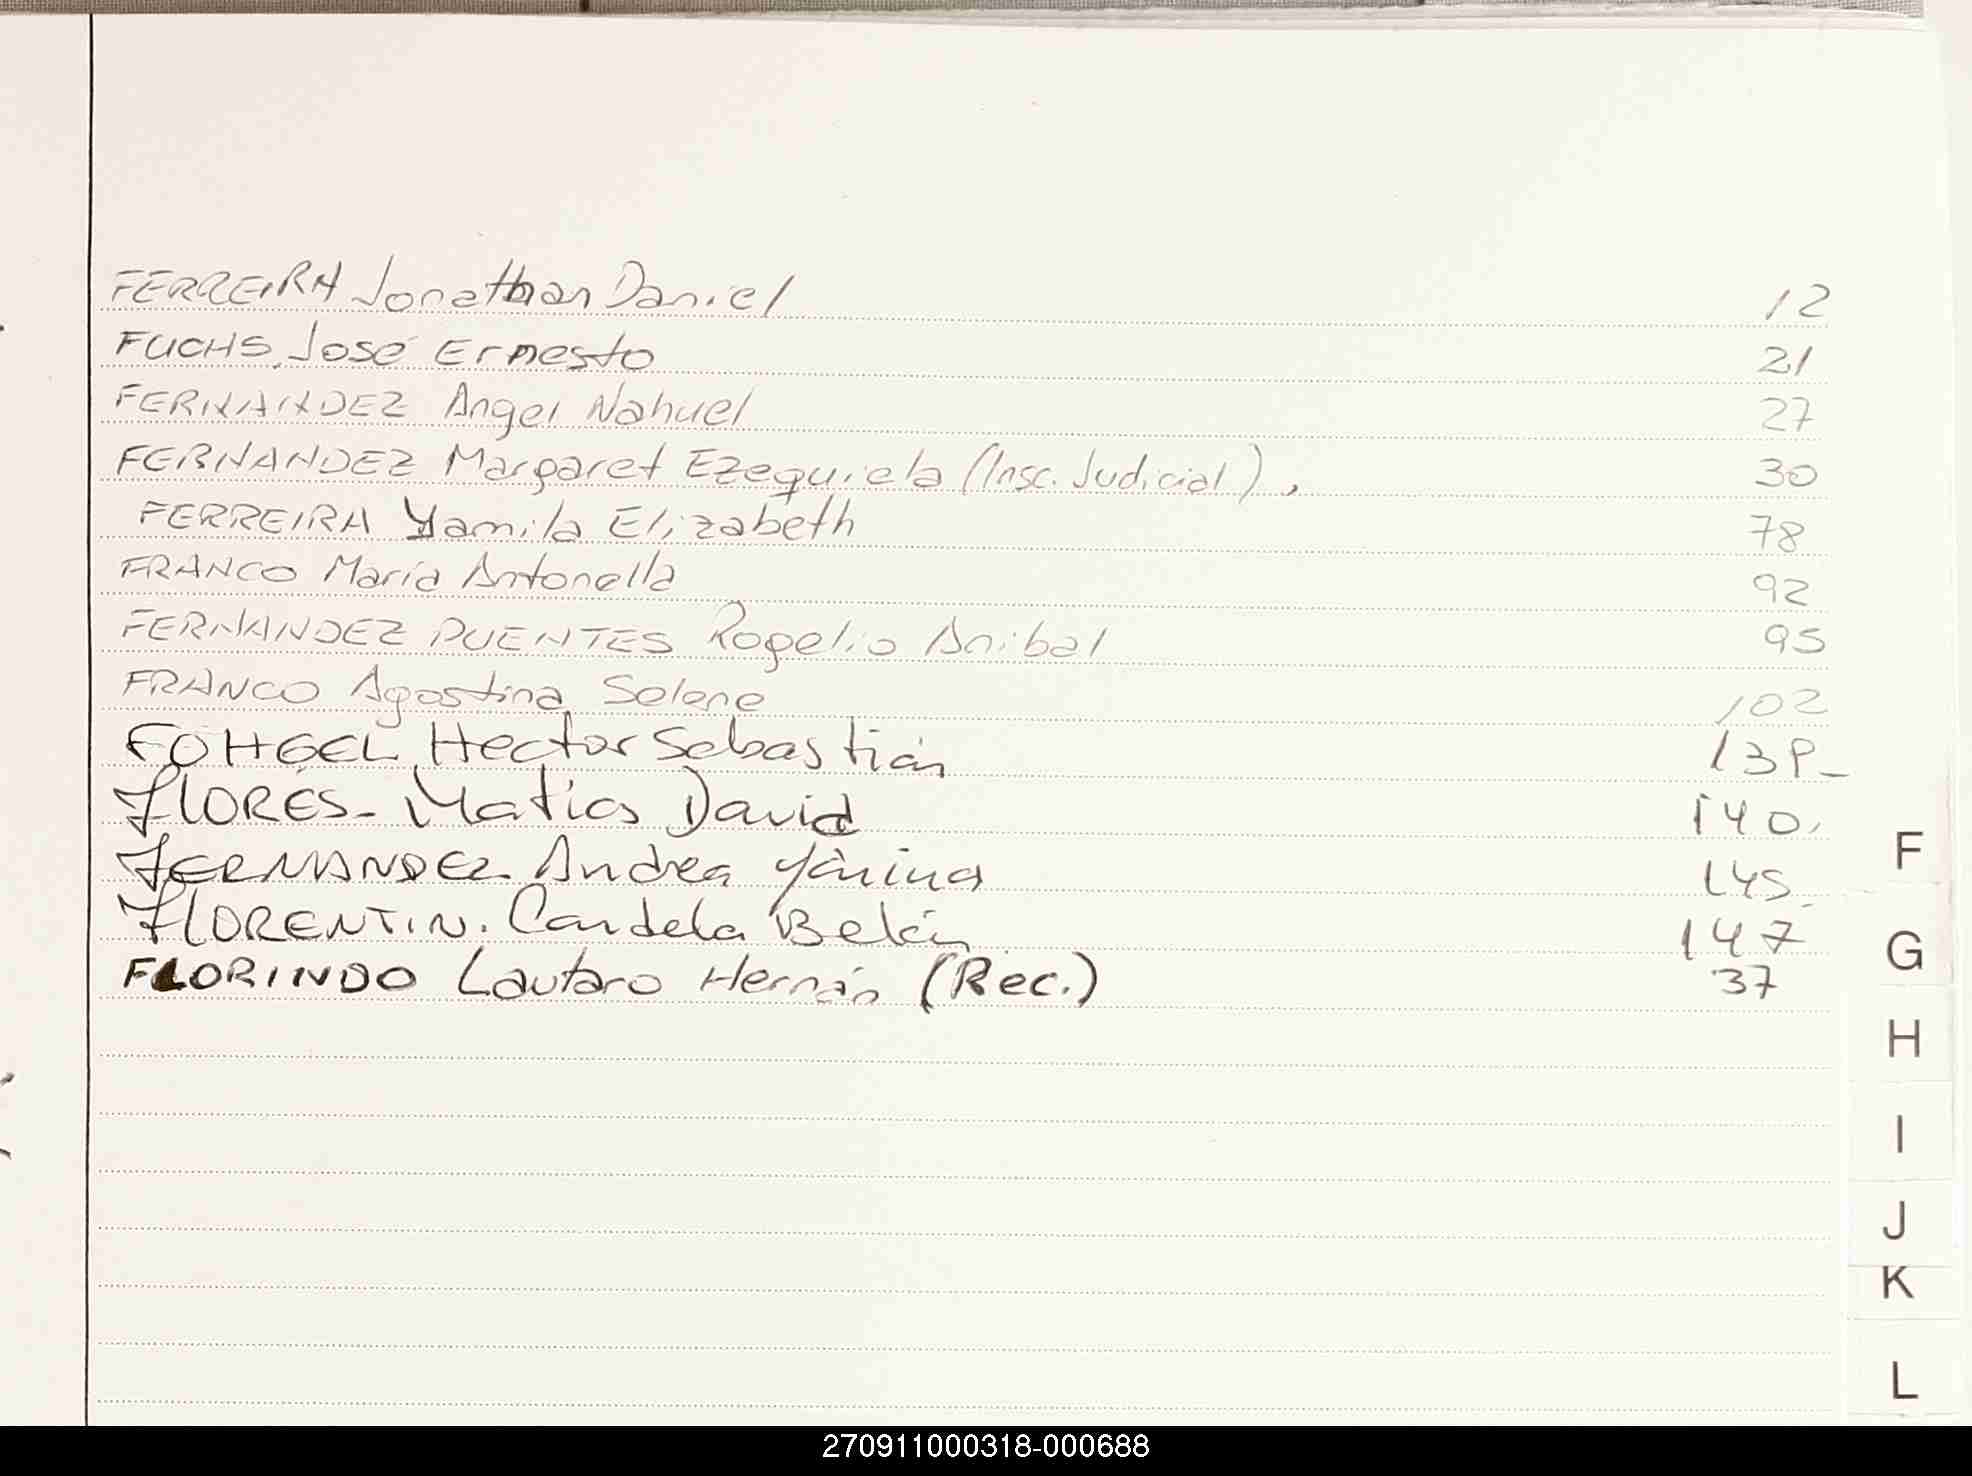 FERREIRA Jonathan Daniel 12
FUCHS, José Ernesto 21
FERNANDEZ Angel Nahuel 27
FERNANDEZ Margaret Ezequiela (Insc. Judicial), 30
FERREIRA Yamila Elizabeth 78
FRANCO María Antonella 92
FERNANDEZ PUENTES Rogelio Anibal 95
FRANCO Agostina Selene 102
FOHGEL Hector Sebastián 139-
FLORES- Matias David 140.
FERNANDEZ Andrea Yanina 145.
FLORENTIN. Candela Belén 147
FLORINDO Lautaro Hernán (Rec.) 37
F
G
H
I
J
K
L
270911000318-000688